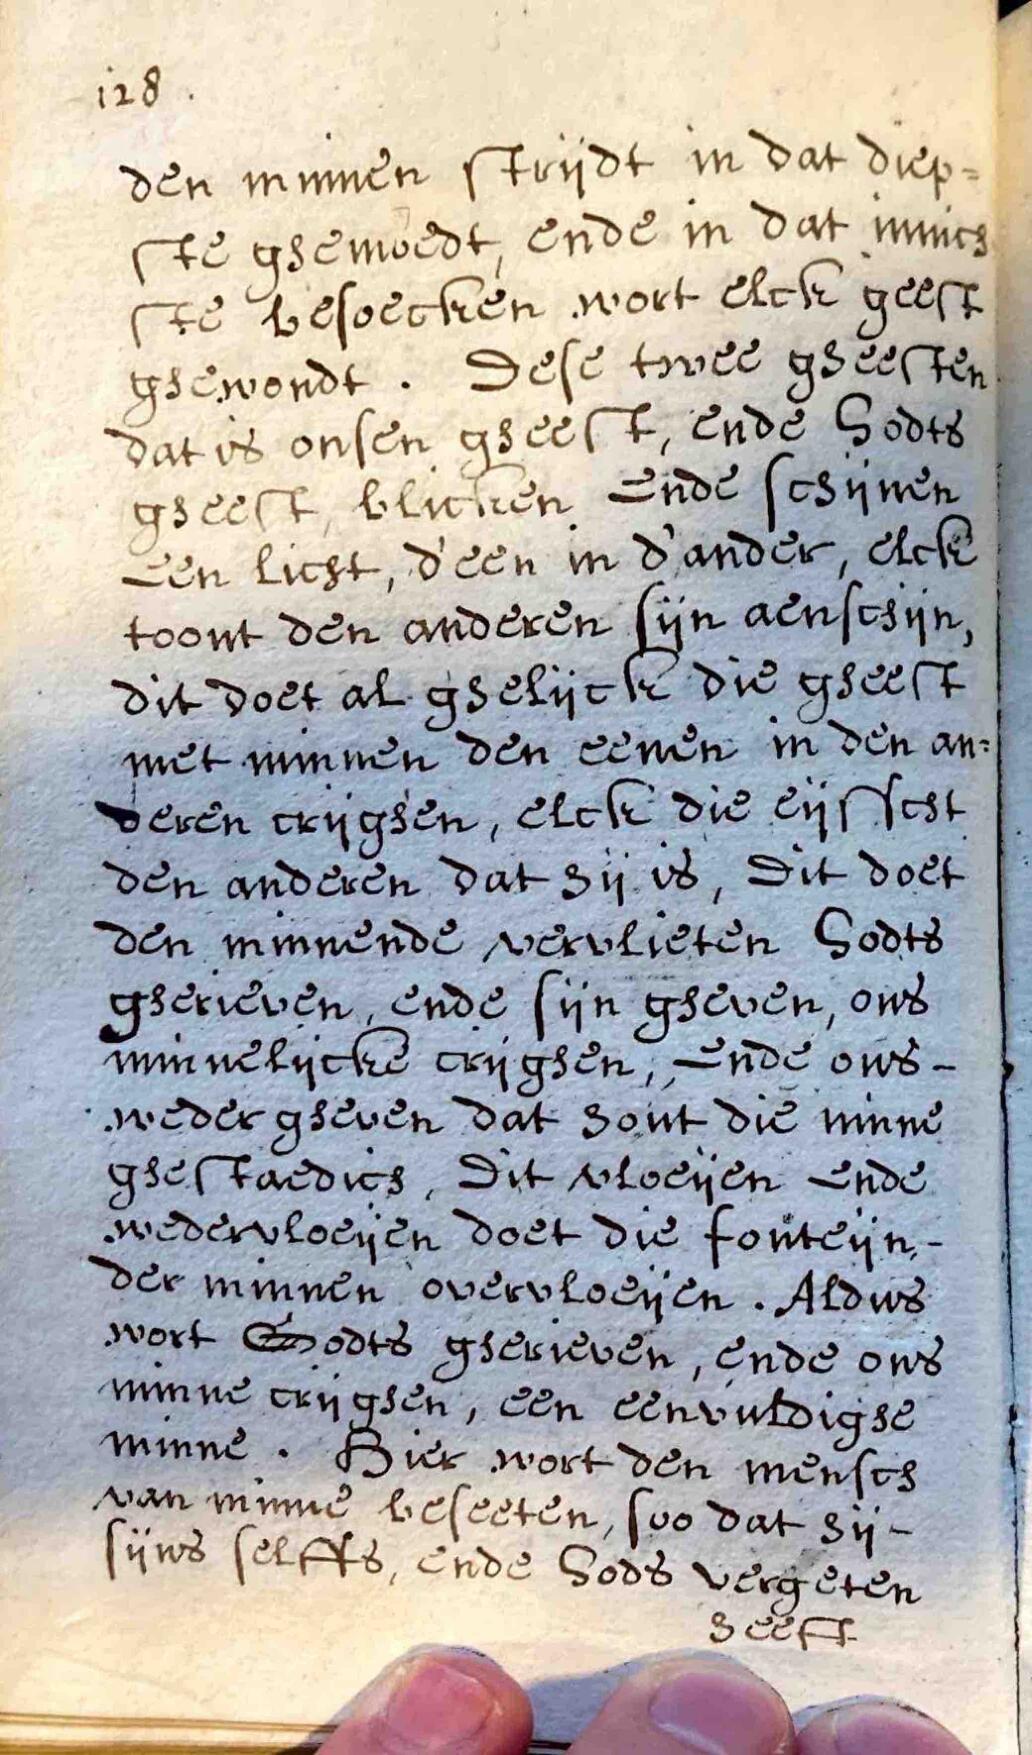 128.
den minnen strijdt in dat diep=
ste ghemoedt, ende in dat innich
ste besoecken wort elck geest
ghewondt. Dese twee gheesten
dat is onsen gheest, ende Godts
gheest, blicken ende schijnen
een licht, d'een in d'ander, elck
toont den anderen sijn aenschijn,
dit doet al ghelijck die gheest
met minnen den eenen in den an=
deren crijghen, elck die eijsscht
den anderen dat hij is, Dit doet
den minnende vervlieten Godts
gherieven, ende sijn gheven, ons
minnelijcke crijghen, ende ons-
weder gheven dat hout die minne
ghestaedich, Dit vloeijen ende
wedervloeijen doet die fonteijn,-
der minnen overvloeijen. Aldus
wort Godts gherieven, ende ons
minne crijghen, een eenvuldighe
minne. Hier wort den mensch
van minne beseeten, soo dat hij-
sijns selffs, ende Gods vergeten
heeft